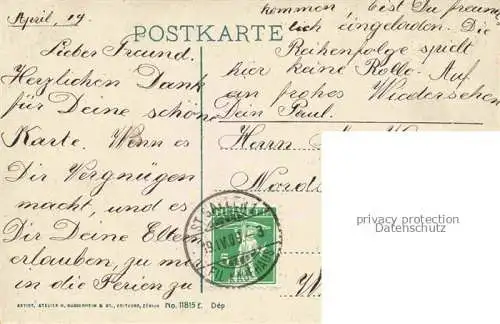 April, 19.
POSTKARTE
Lieber Freund.
Herzlichen Dank
für Deine schöne
Karte. Wenn es
Dir Vergnügen
macht, und es
Dir Deine Eltern
erlauben, zu mir
in die Ferien zu
kommen, bist Du freund
lich eingeladen. Die
Reihenfolge spielt
hier keine Rolle. Auf
ein frohes Wiedersehen
Dein Paul.
Herrn
ST. GALLEN 1
19.IV.09.-3
FIL. KAUFHAUS
5
privacy protection
watermark
No. 11815 E. Dép